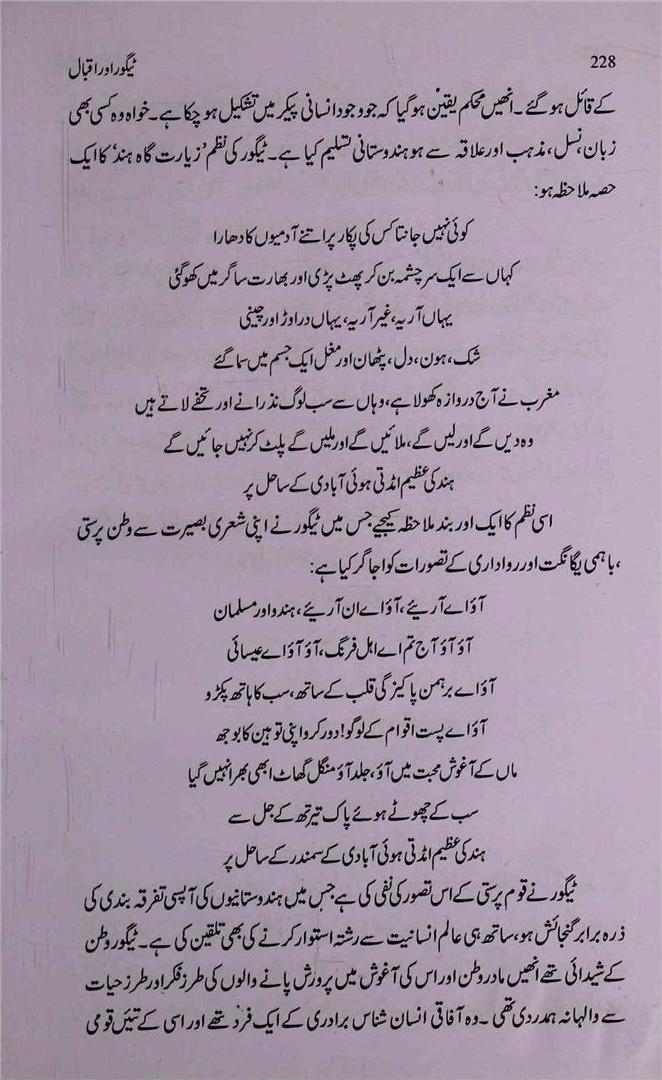 228
ٹیگور اور اقبال
کے قائل ہو گئے۔ انھیں محکم یقین ہو گیا کہ جو وجود انسانی پیکر میں تشکیل ہو چکا ہے۔ خواہ وہ کسی بھی
زبان، نسل، مذہب اور علاقہ سے ہو ہندوستانی تسلیم کیا ہے۔ ٹیگور کی نظم 'زیارت گاہ ہند' کا ایک
حصہ ملاحظہ ہو:
کوئی نہیں جانتا کس کی پکار پر اتنے آدمیوں کا دھارا
کہاں سے ایک سرچشمہ بن کر پھٹ پڑی اور بھارت ساگر میں کھو گئی
یہاں آریہ، غیر آریہ، یہاں دراوڑ اور چینی
شک، ہون، دل، پٹھان اور مغل ایک جسم میں سما گئے
مغرب نے آج دروازہ کھولا ہے، وہاں سے سب لوگ نذرانے اور تحفے لاتے ہیں
وہ دیں گے اور لیں گے، ملائیں گے اور ملیں گے پلٹ کر نہیں جائیں گے
ہند کی عظیم امڈتی ہوئی آبادی کے ساحل پر
اسی نظم کا ایک اور بند ملاحظہ کیجیے جس میں ٹیگور نے اپنی شعری بصیرت سے وطن پرستی
،باہمی یگانگت اور رواداری کے تصورات کو اجاگر کیا ہے:
آؤ اے آریئے، آؤ اے ان آریئے، ہندو اور مسلمان
آؤ آؤ آج تم اے اہل فرنگ، آؤ آؤ اے عیسائی
آؤ اے برہمن پاکیزگی قلب کے ساتھ، سب کا ہاتھ پکڑو
آؤ اے پست اقوام کے لوگو! دور کرو اپنی توہین کا بوجھ
ماں کے آغوش محبت میں آؤ، جلد آؤ منگل گھاٹ ابھی بھرا نہیں گیا
سب کے چھوئے ہوئے پاک تیرتھ کے جل سے
ہند کی عظیم امڈتی ہوئی آبادی کے سمندر کے ساحل پر
ٹیگور نے قوم پرستی کے اس تصور کی نفی کی ہے جس میں ہندوستانیوں کی آپسی تفرقہ بندی کی
ذرہ برابر گنجائش ہو، ساتھ ہی عالم انسانیت سے رشتہ استوار کرنے کی بھی تلقین کی ہے۔ ٹیگور وطن
کے شیدائی تھے انھیں مادر وطن اور اس کی آغوش میں پرورش پانے والوں کی طرز فکر اور طرز حیات
سے والہانہ ہمدردی تھی ۔ وہ آفاقی انسان شناس برادری کے ایک فرد تھے اور اسی کے تئیں قومی